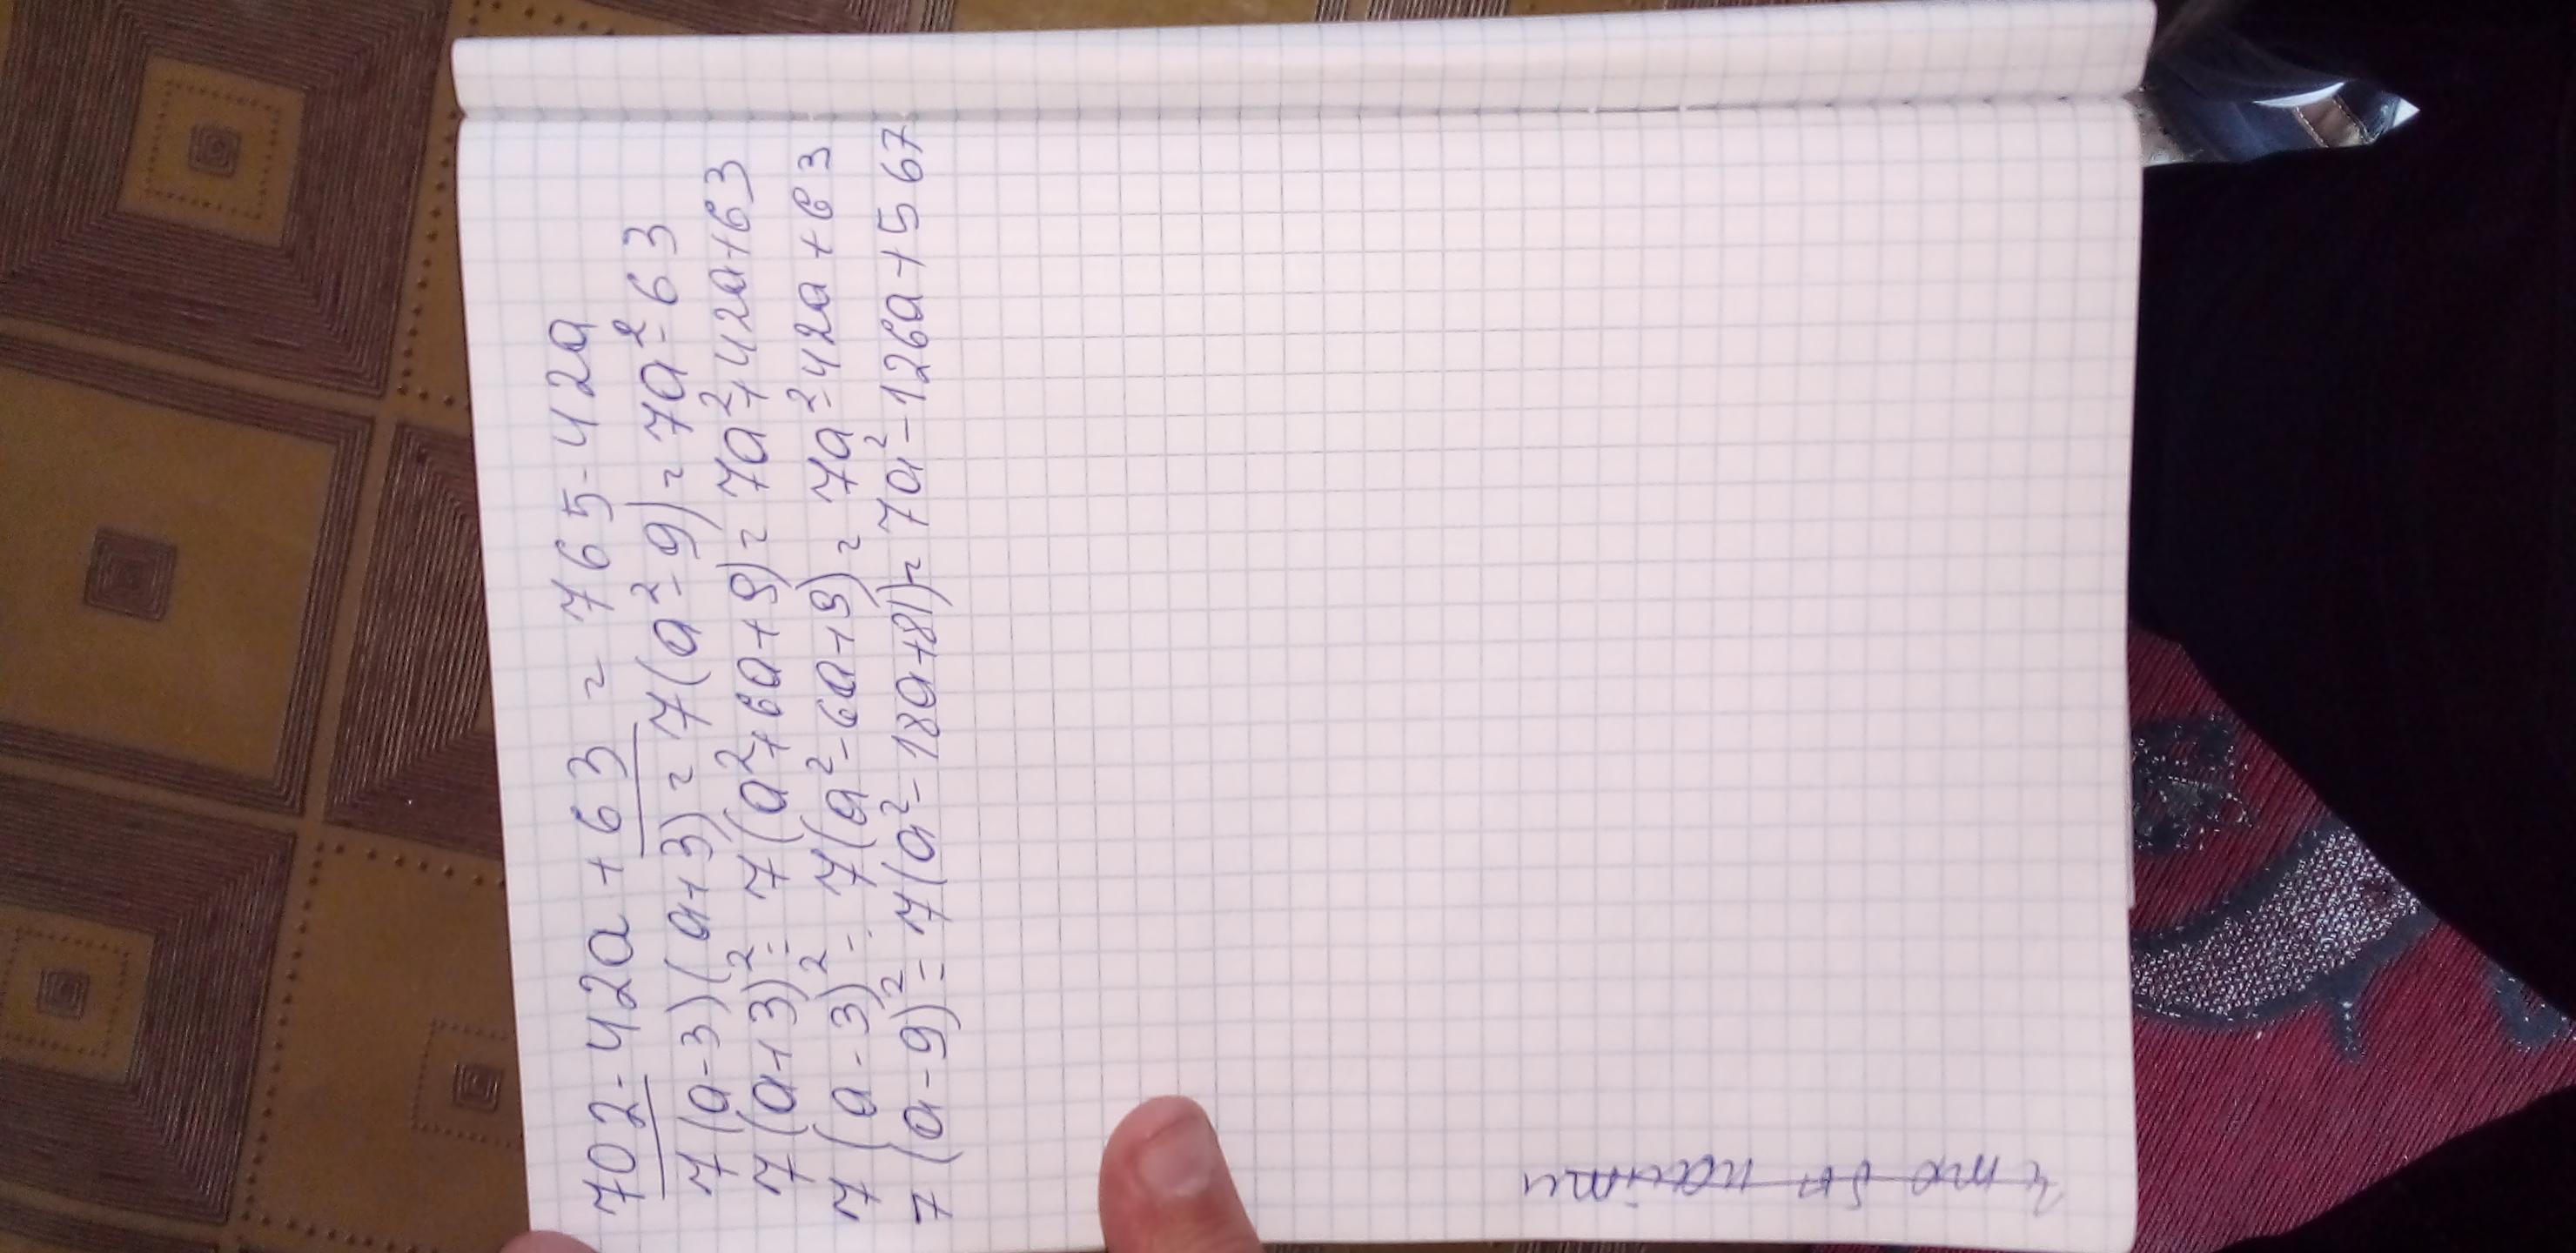 702-42a+63 = 765-42a
7(a-3)(a+3)=7(a²-9)=7a²-63
7(a+3)²=7(a²+6a+9)=7a²+42a+63
7(a-3)²=7(a²-6a+9)=7a²-42a+63
7(a-9)²=7(a²-18a+81)=7a²-126a+567